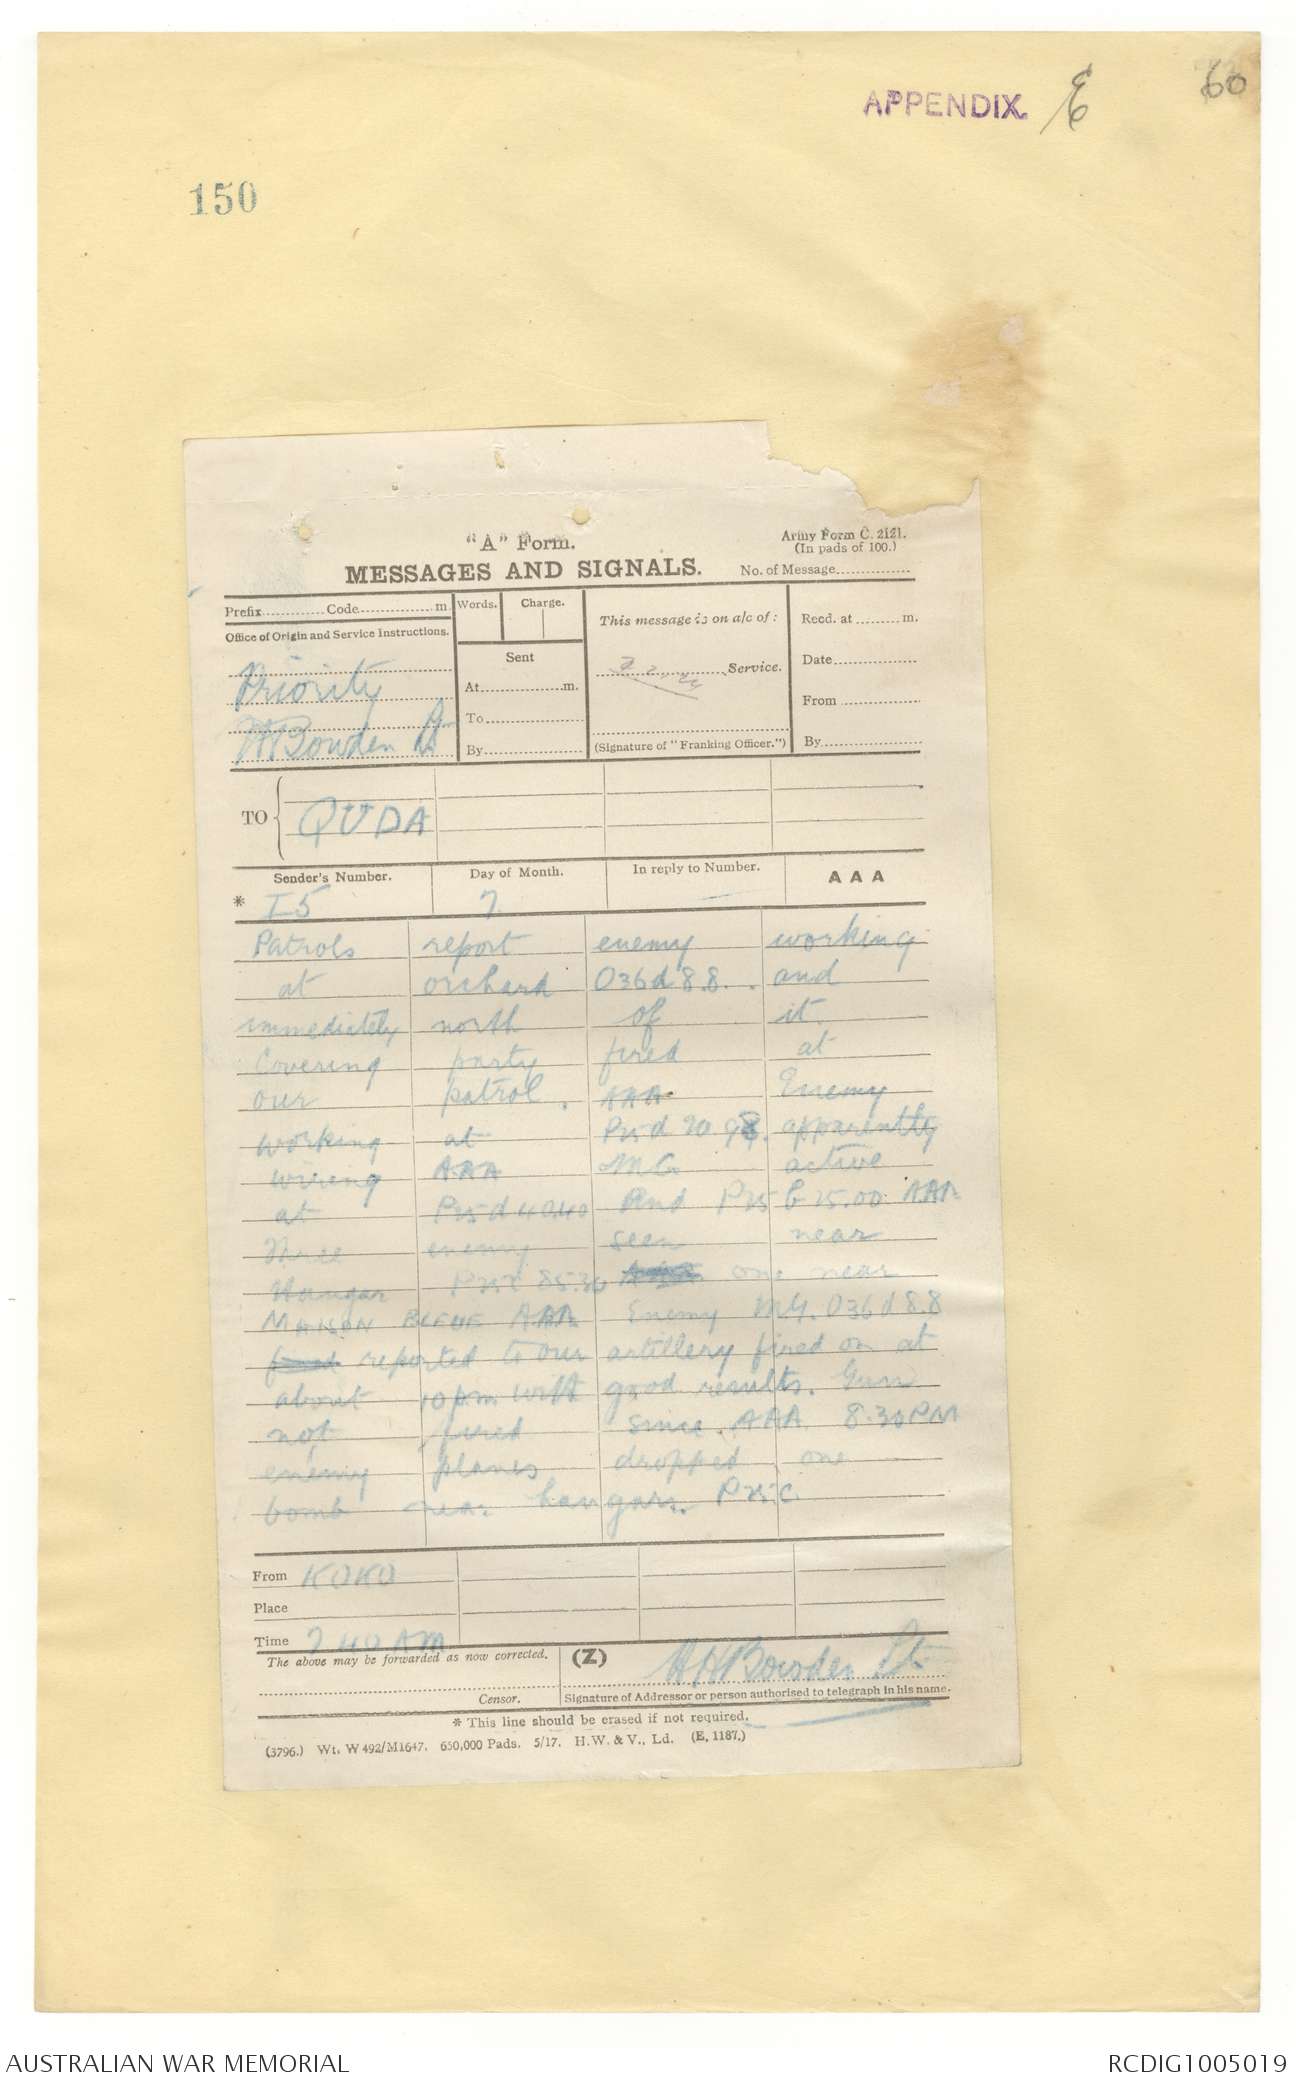 APPENDIX. E
60
150
"A" Form.
Army Form C. 2121.
(In pads of 100.)
MESSAGES AND SIGNALS.
No. of Message
Prefix Code m.
Words.
Charge.
This message is on a/c of:
Recd. at m.
Office of Origin and Service Instructions.
Sent
Service.
Date
Priority
At m.
From
To
HHBowden Lt
By
(Signature of "Franking Officer.")
By
TO
QUDA
Sender's Number.
Day of Month.
In reply to Number.
AAA
* I 5
7
—
Patrols report enemy working
at orchard O36d 8.8. and
immediately north of it.
Covering party fired at
our patrol. AAA Enemy
working at P25d 20.98. apparently
wiring AAA MG active
at P25d 40.40 and P25 b 25.00 AAA
Three enemy seen near
Hangar P25c 85.30 one near
MAISON BLEUE AAA Enemy M.G. O36d 8.8
fired reported to our artillery fired on at
about 10 p.m. with good results. Gun
not fired since. AAA 8.30 PM
enemy planes dropped one
bomb near hangars. P25c
From KOKO
Place
Time 7 40 AM
The above may be forwarded as now corrected.
(Z)
HHBowden Lt.
Censor.
Signature of Addressor or person authorised to telegraph in his name.
* This line should be erased if not required.
(3796.) Wt. W492/M1647. 650,000 Pads. 5/17. H.W.&V., Ld. (E. 1187.)
AUSTRALIAN WAR MEMORIAL
RCDIG1005019